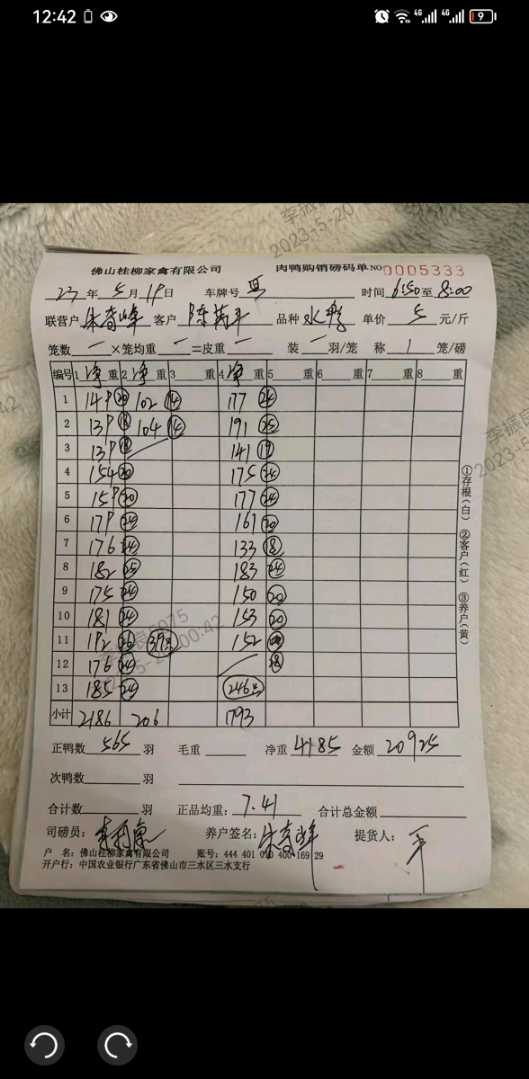 12:42
4G 4G 9
佛山桂柳家禽有限公司 肉鸭购销磅码单 NO 0005333
23 年 5 月 19 日 车牌号 时间 6:50 至 8:00
联营户 客户 品种 单价 5 元/斤
笼数 一 ×笼均重 一 =皮重 一 装 一 羽/笼 称 1 笼/磅
编号 1 净 重 2 净 重 3 重 4 净 重 5 重 6 重 7 重 8 重
1 149 20 102 14 177 24
2 139 18 104 14 191 25
3 139 18 141 19
4 154 20 175 24
5 159 20 177 24
6 179 24 161 20
7 176 24 133 18
8 182 25 183 24
9 175 24 150 20
10 181 24 153 20
11 192 26 152
12 176 24 28
13 185 24
小计 2186 206 1793
正鸭数 565 羽 毛重 净重 4185 金额 20925
次鸭数 羽
合计数 羽 正品均重: 7.41 合计总金额
司磅员: 养户签名: 提货人:
户 名: 佛山桂柳家禽有限公司 账号: 444 401 010 400 169 29
开户行: 中国农业银行广东省佛山市三水区三水支行
①存根(白) ②客户(红) ③养户(黄)
2023-5-20